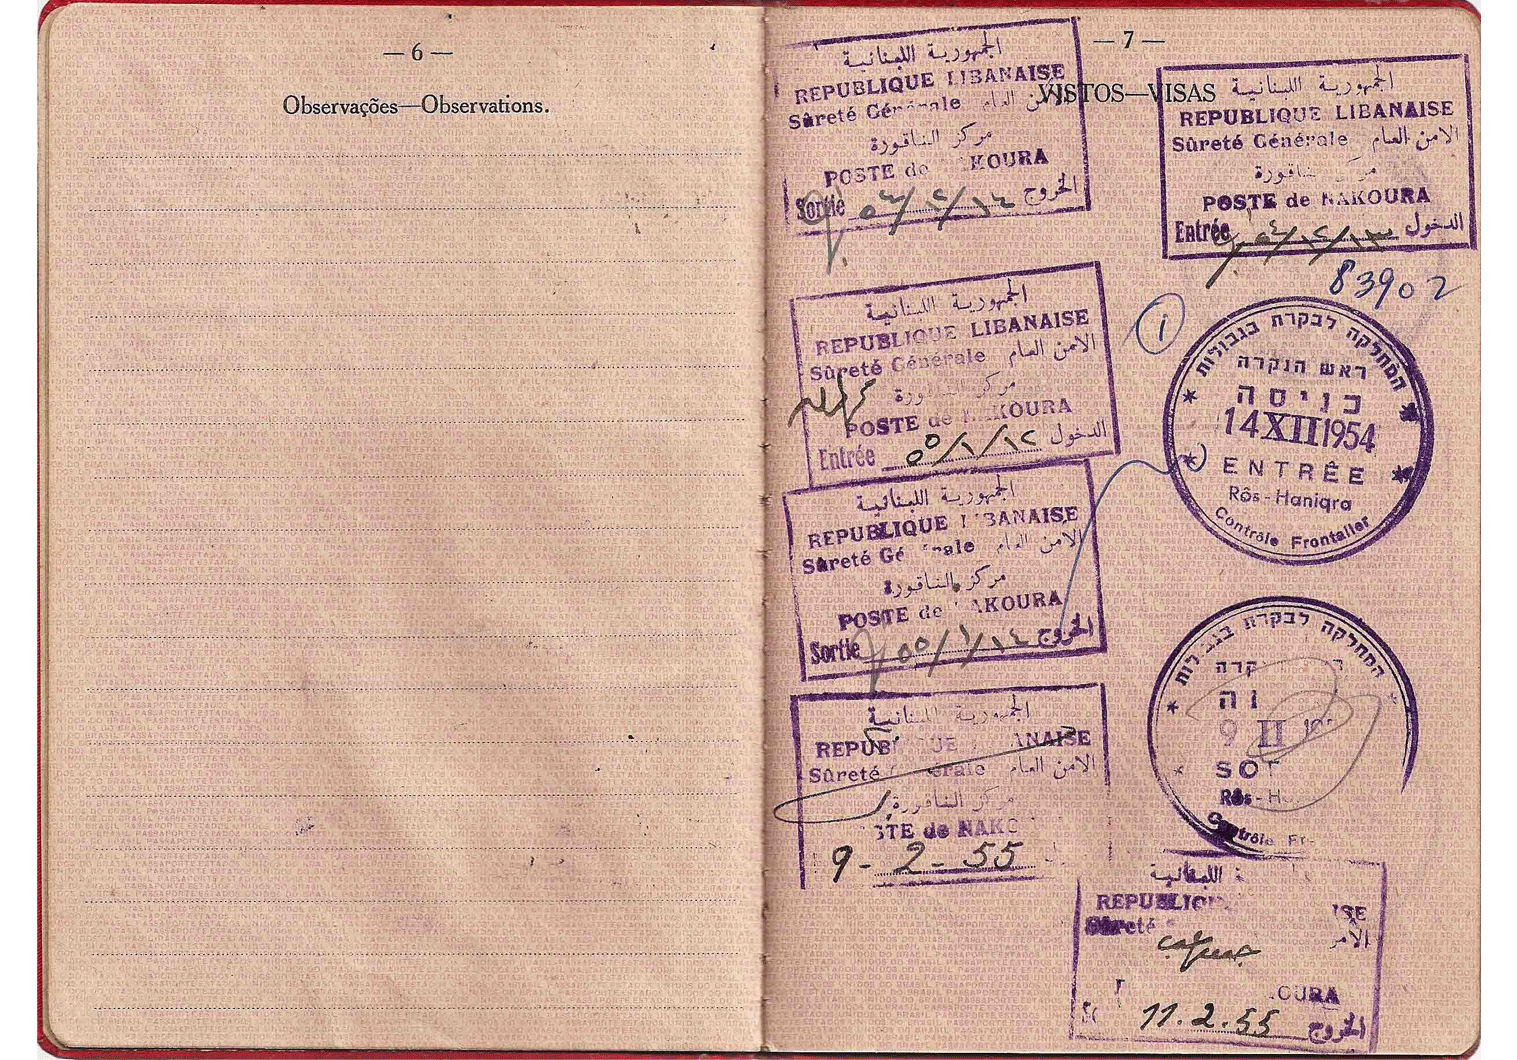 — 6 —
Observações—Observations.
— 7 —
VISTOS—VISAS
الجمهورية اللبنانية
REPUBLIQUE LIBANAISE
Sûreté Générale الامن العام
مركز الناقورة
POSTE de NAKOURA
Sortie ٥٤/١٢/١٤ الخروج
الجمهورية اللبنانية
REPUBLIQUE LIBANAISE
Sûreté Générale الامن العام
مركز الناقورة
POSTE de NAKOURA
Entrée ٥٤/١٢/١٣ الدخول
83902
الجمهورية اللبنانية
REPUBLIQUE LIBANAISE
Sûreté Générale الامن العام
مركز الناقورة
POSTE de NAKOURA
Entrée ٥٥/١/١٢ الدخول
1
המחלקה לבקרת הגבולות
ראש הנקרה
כניסה
14 XII 1954
ENTRÊE
Rôs-Haniqra
Contrôle Frontalier
الجمهورية اللبنانية
REPUBLIQUE LIBANAISE
Sûreté Générale الامن العام
مركز الناقورة
POSTE de NAKOURA
Sortie ٥٥/١/١٤ الخروج
המחלקה לבקרת
קרה
9 II
SOT
Rôs-H
Contrôle Fr
الجمهورية اللبنانية
REPUBLIQUE LIBANAISE
Sûreté Générale الامن العام
مركز الناقورة
STE de NAKO
9-2-55
اللبنانية
REPUBLIQU ISE
Sûreté الامن
KOURA
11.2.55 الخروج